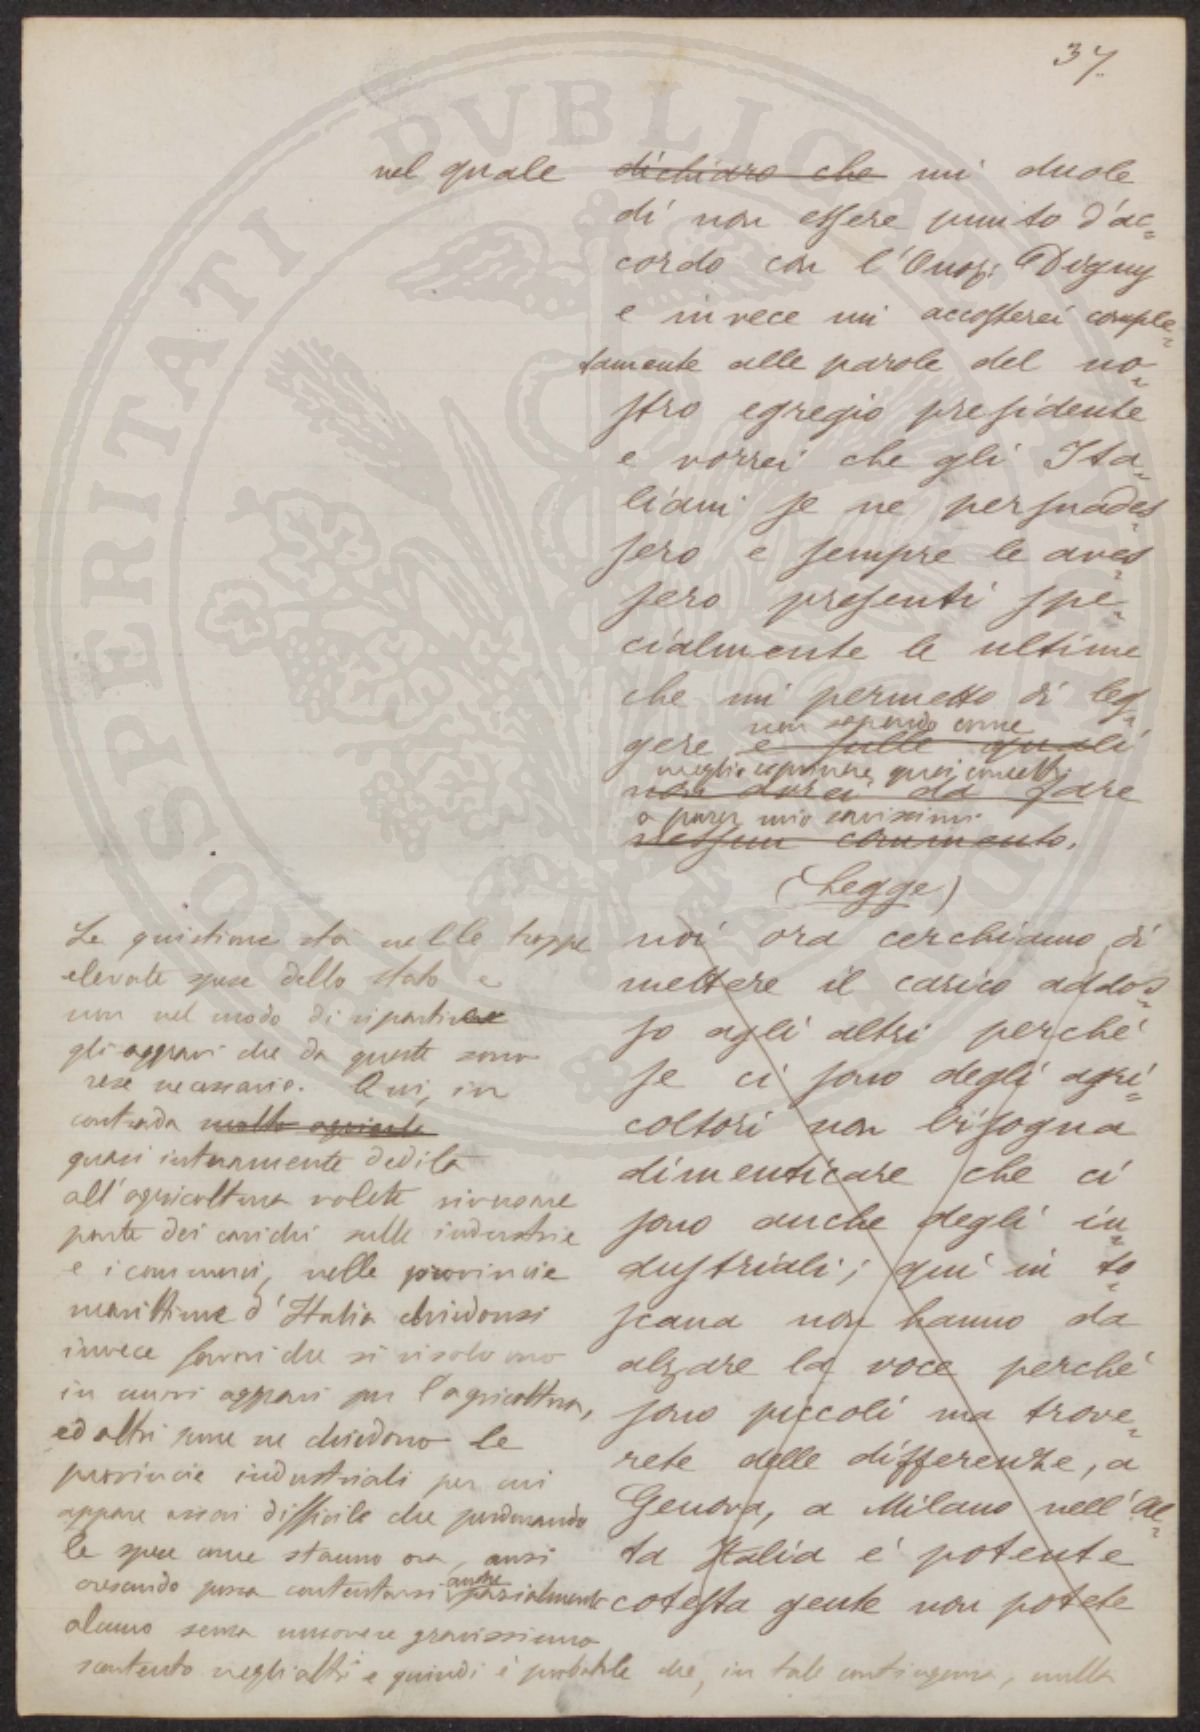 37.
nel quale dichiaro che mi duole
di non essere punto d'ac=
cordo con l'Onor: Digny
e invece mi accosterei comple=
tamente alle parole del no=
stro egregio presidente
e vorrei che gli Ita=
liani se ne persuades=
sero e sempre le aves=
sero presenti spe=
cialmente le ultime
che mi permetto di leg=
non sapendo come
gere e sulle quali
meglio esprimere quei concetti
non avrei da fare
a parer mio savissimi.
nessun commento.
(Legge)
noi ora cerchiamo di
mettere il carico addos=
so agli altri perché
se ci sono degli agri=
coltori non bisogna
dimenticare che ci
sono anche degli in=
dustriali; qui in to=
scana non hanno da
alzare la voce perché
sono piccoli ma trove=
rete delle differenze, a
Genova, a Milano nell'al=
ta Italia é potente
cotesta gente non potete
La quistione sta nelle troppe
elevate spese dello stato e
non nel modo di ripartire
gli aggravi che da queste sono
rese necessarie. Qui, in
contrada molto agricola
quasi interamente dedita
all'agricoltura volete riversare
parte dei carichi sulle industrie
e i commerci, nelle provincie
marittime d'Italia chiedonsi
invece favori che si risolvono
in nuovi aggravi per l'agricoltura,
ed altri pure ne chiedono le
provincie industriali per cui
appare assai difficile che perdurando
le spese come stanno ora, anzi
crescendo possa contentarsi anche parzialmente
alcuno senza muovere gravissimo
scontento negli altri e quindi é probabile che, in tale contingenza, nulla